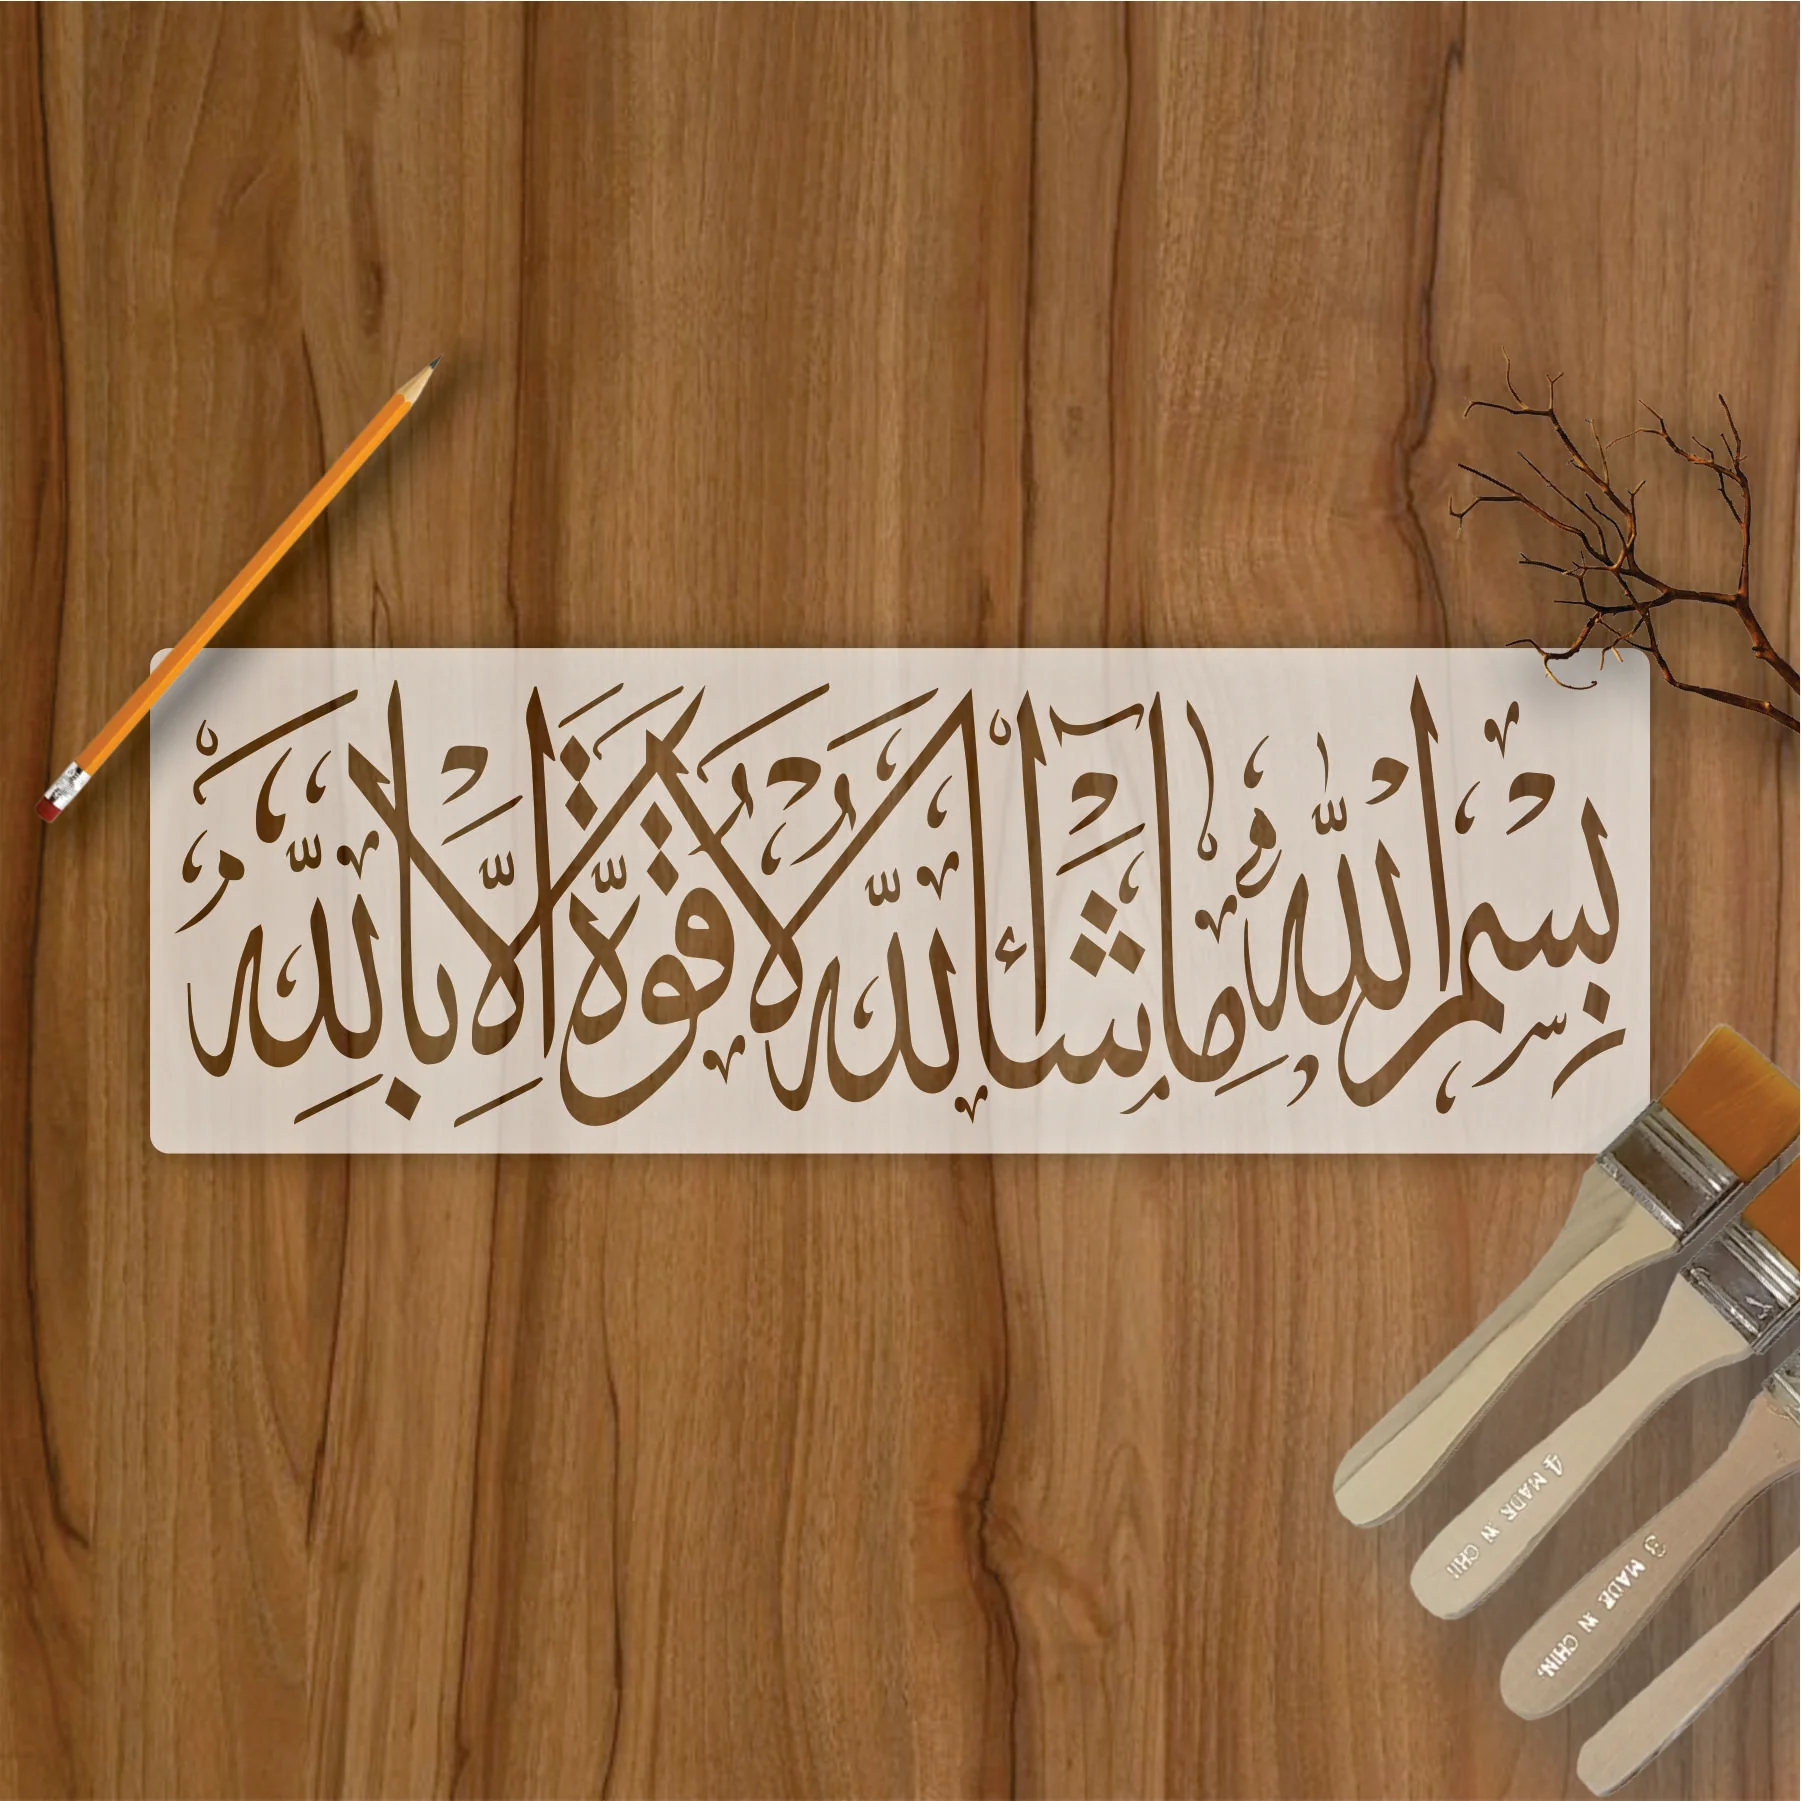 بسم الله ما شاء الله لا قوة الا بالله
4 MADE IN CHI
3 MADE IN CHIN